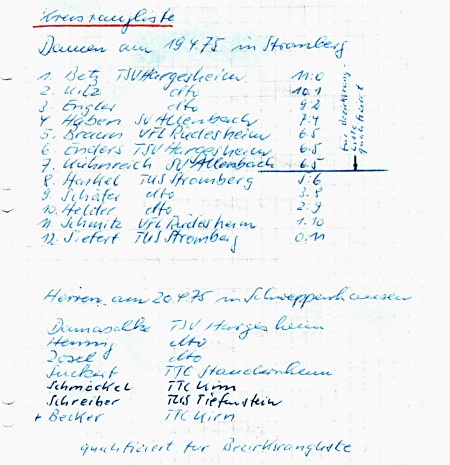 Kreisrangliste
Damen am 19.4.75 in Stromberg
1. Betz TSV Hargesheim 11:0
2. Kilz dto 10:1
3. Engler dto 9:2
4. Habern SV Allenbach 7:4
5. Braun VfL Rüdesheim 6:5
6. Enders TSV Hargesheim 6:5
7. Kühnreich SV Allenbach 6:5
8. Hankel TUS Stromberg 5:6
9. Schäfer dto 3:8
10. Helder dto 2:9
11. Schmitz VfL Rüdesheim 1:10
12. Siefert TUS Stromberg 0:11
für Bezirksrang-
liste
qualifiziert
Herren am 20.4.75 in Schweppenhausen
Damaschke TSV Hargesheim
Hennig dto
Zosel dto
Suckert TTC Standernheim
Schmöckel TTC Kirn
Schreiber TUS Tiefenstein
+ Becker TTC Kirn
qualifiziert für Bezirksrangliste